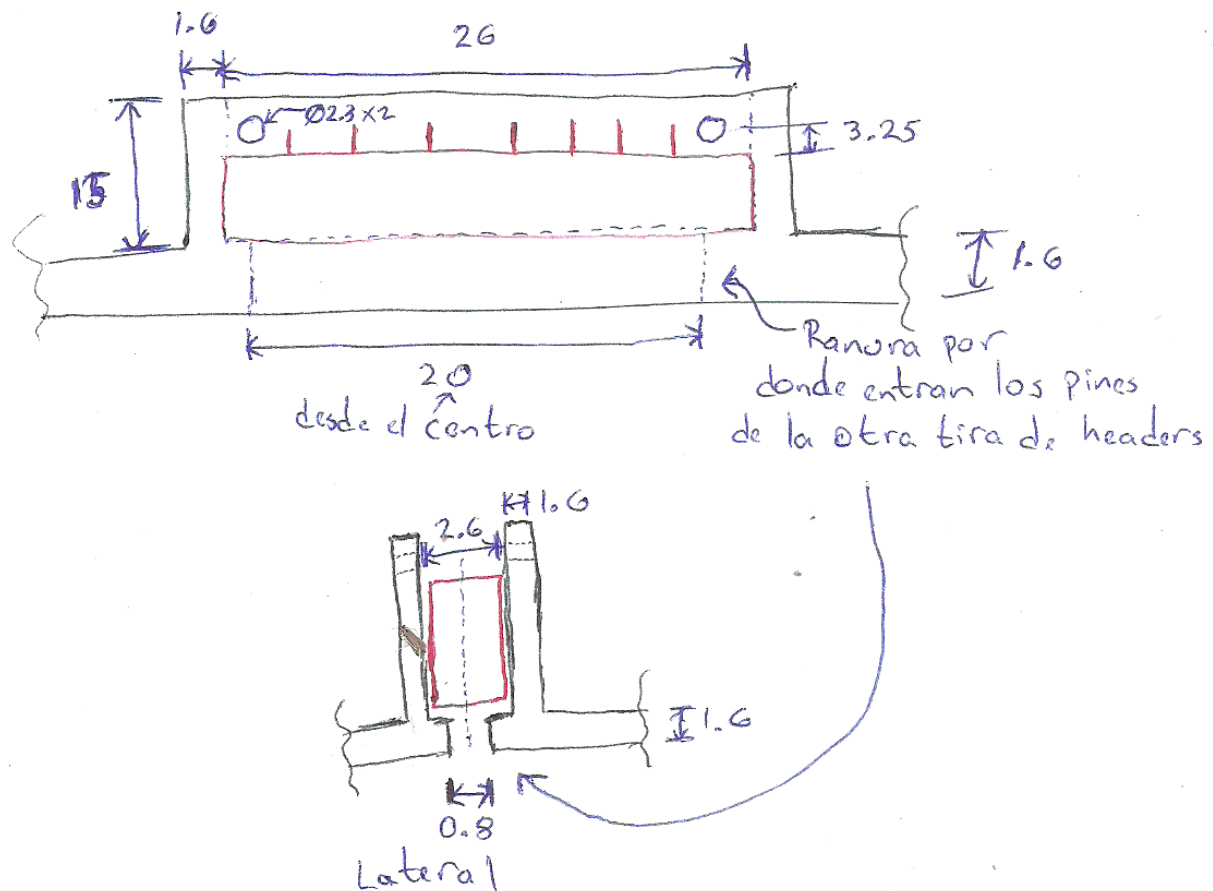 1.6
26
Ø2.3×2
3.25
15
1.6
20
desde el centro
Ranura por
donde entran los pines
de la otra tira de headers
1.6
2.6
1.6
0.8
Lateral